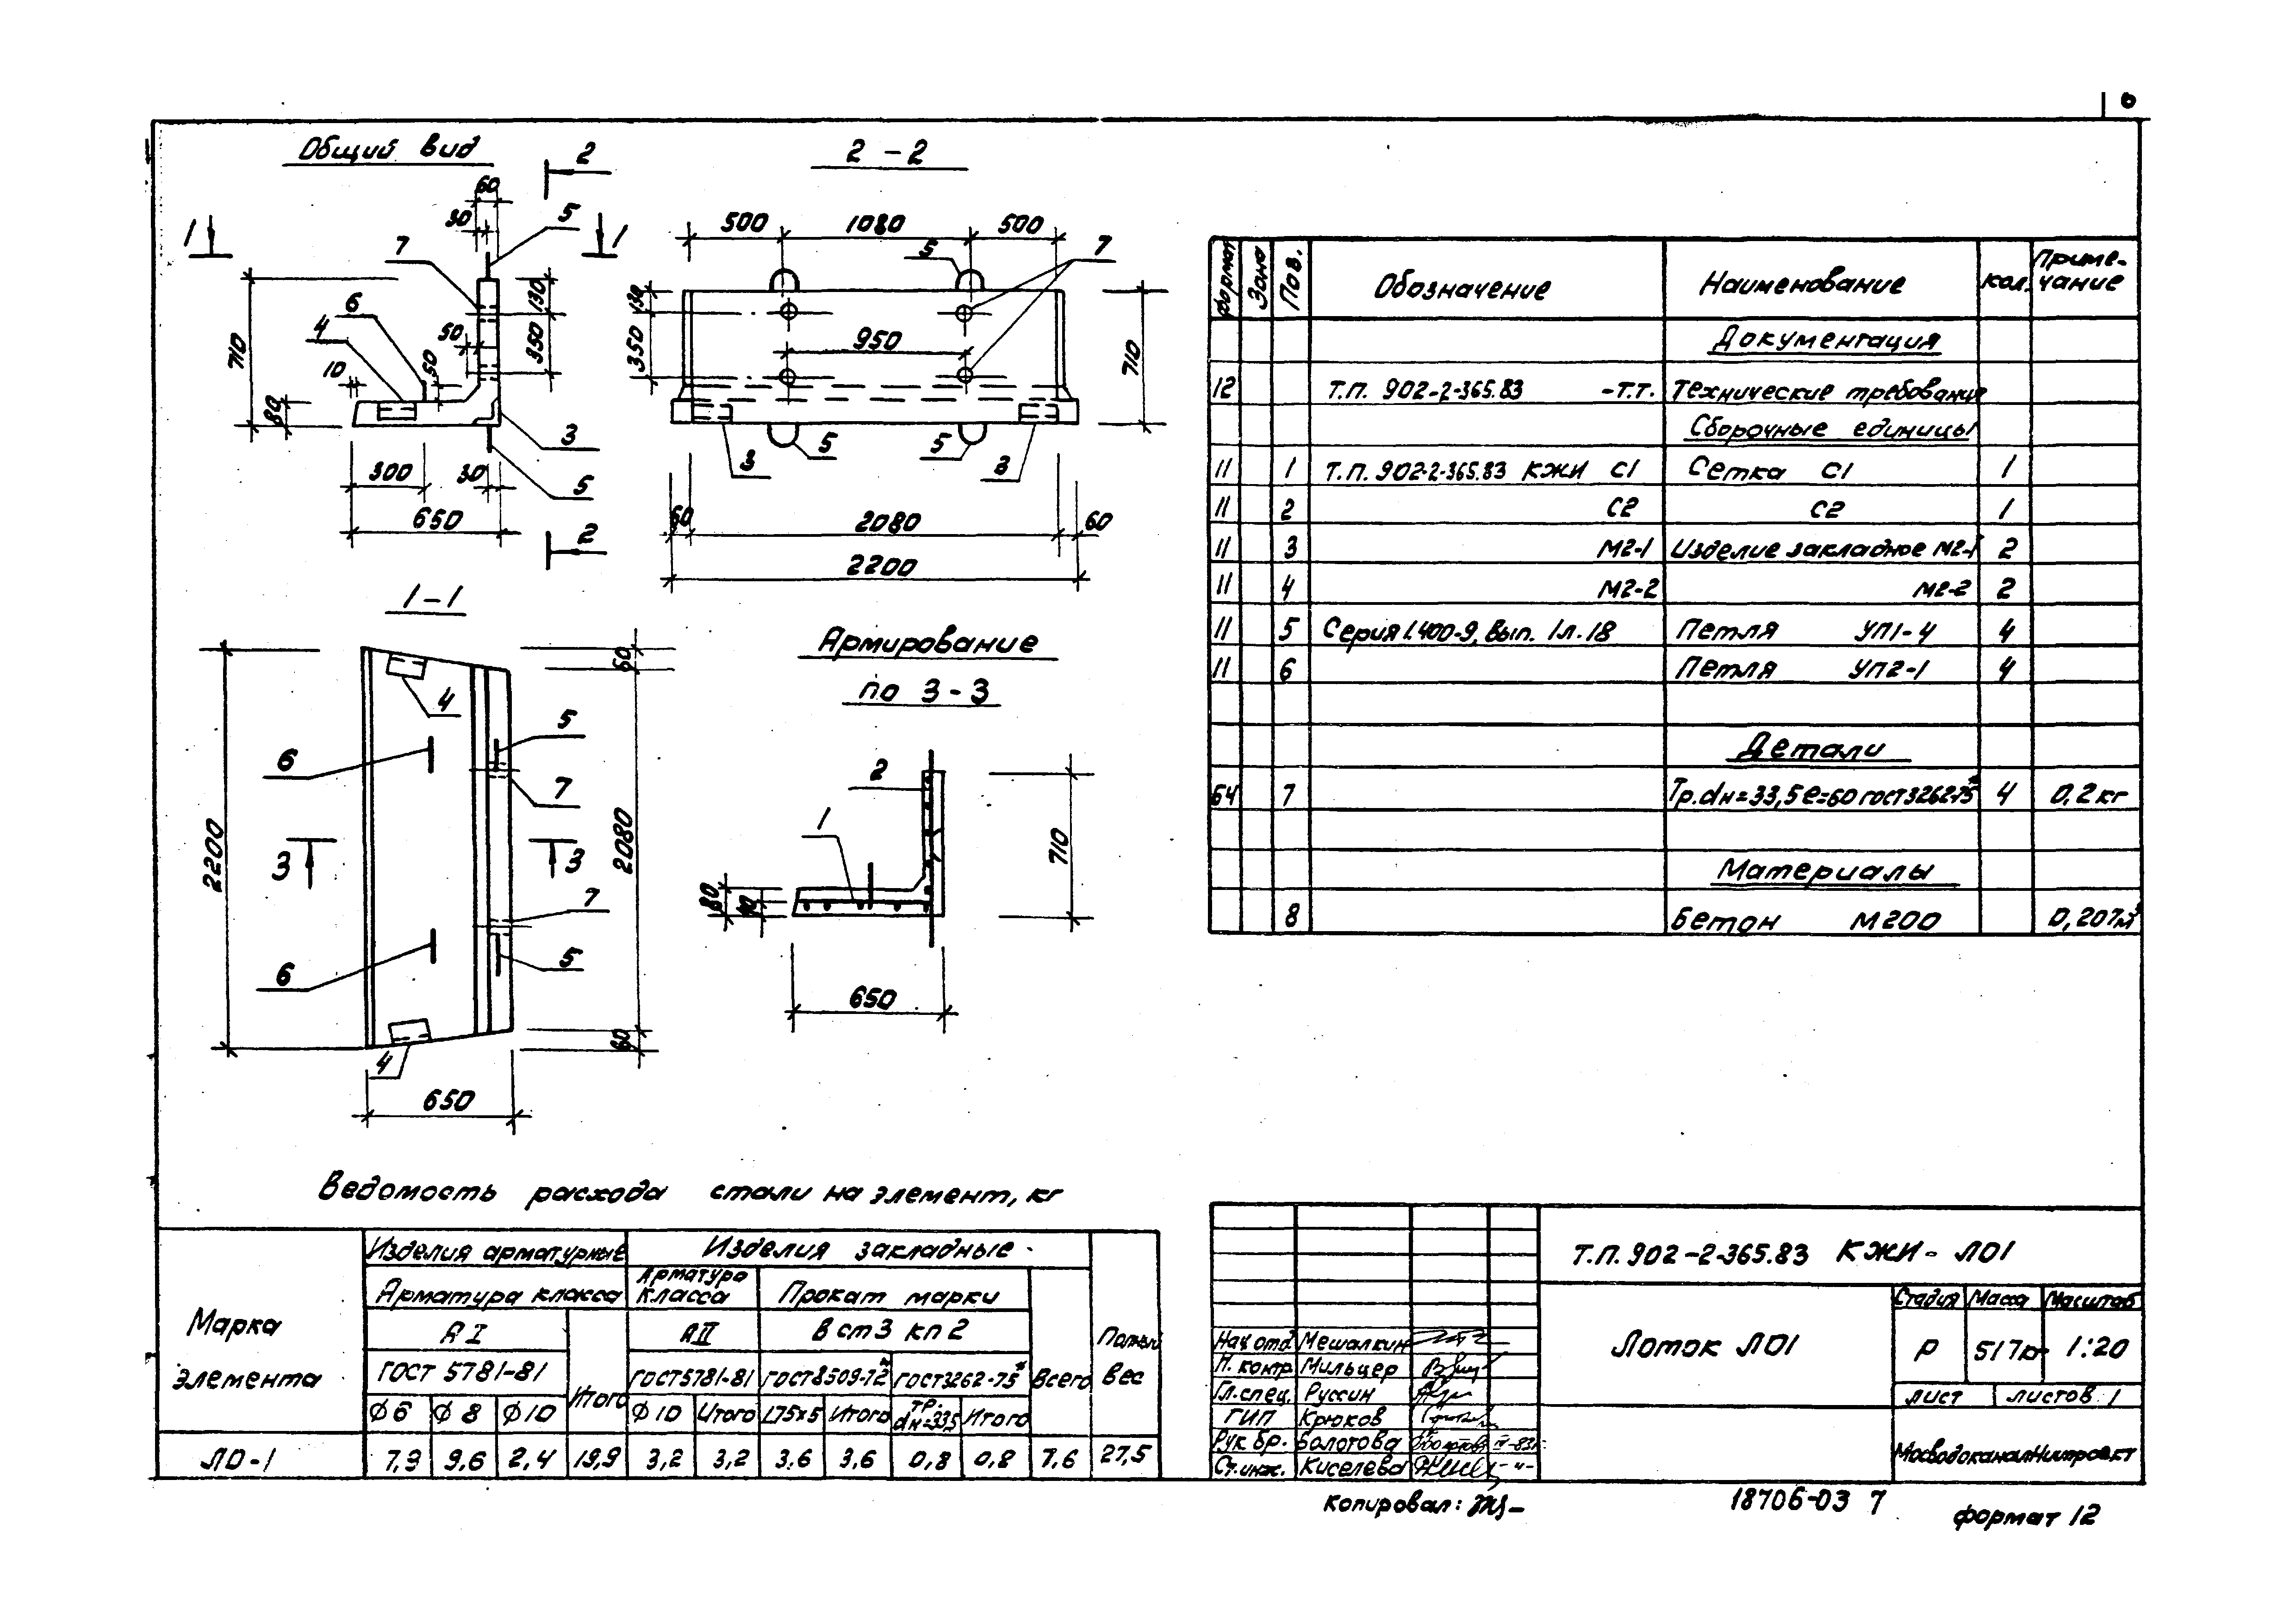 6
Общий вид
2
2 - 2
60
30
5
1
1
7
6
4
50
50
10
710
80
130
350
3
5
300
30
650
2
500
1080
500
5
7
130
350
950
710
3
5
5
3
60
2080
60
2200
1-1
60
4
5
6
7
2200
2080
3
3
7
6
5
4
60
650
Армирование
по 3-3
2
1
80
40
710
650
Формат
Зона
Поз.
Обозначение
Наименование
кол.
Приме-
чание
Документация
12 Т.П. 902-2-365.83 -Т.Т. Технические требования
Сборочные единицы
11 1 Т.П. 902-2-365.83 КЖИ С1 Сетка С1 1
11 2 С2 С2 1
11 3 М2-1 Изделие закладное М2-1 2
11 4 М2-2 М2-2 2
11 5 Серия 1.400-9, вып. 1 л. 18 Петля УП1-4 4
11 6 Петля УП2-1 4
Детали
Б4 7 Тр. dн=33,5 e=60 ГОСТ 3262-75* 4 0,2 кг
Материалы
8 Бетон М200 0,207м³
Ведомость расхода стали на элемент, кг
Марка
элемента
Изделия арматурные
Изделия закладные
Арматура класса
Арматура
класса
Прокат марки
А I
А II
В ст 3 кп 2
ГОСТ 5781-81
Итого
ГОСТ 5781-81
ГОСТ 8509-72*
ГОСТ 3262-75*
Всего
Полный
вес
ф 6 ф 8 ф 10 ф 10 Итого L75×5 Итого тр. dн=33,5 Итого
ЛО-1 7,9 9,6 2,4 19,9 3,2 3,2 3,6 3,6 0,8 0,8 7,6 27,5
Т.П. 902-2-365.83 КЖИ- ЛО1
Лоток ЛО1
Стадия Масса Масштаб
Р 517кг 1:20
лист листов 1
МосводоканалНИИпроект
Нач отд. Мешалкин
Н. контр. Мильцер
Гл. спец. Руссин
ГИП Крюков
Рук бр. Болотова IV-83г.
Ст. инж. Киселева -"-
Копировал:
18706-03 7
формат 12